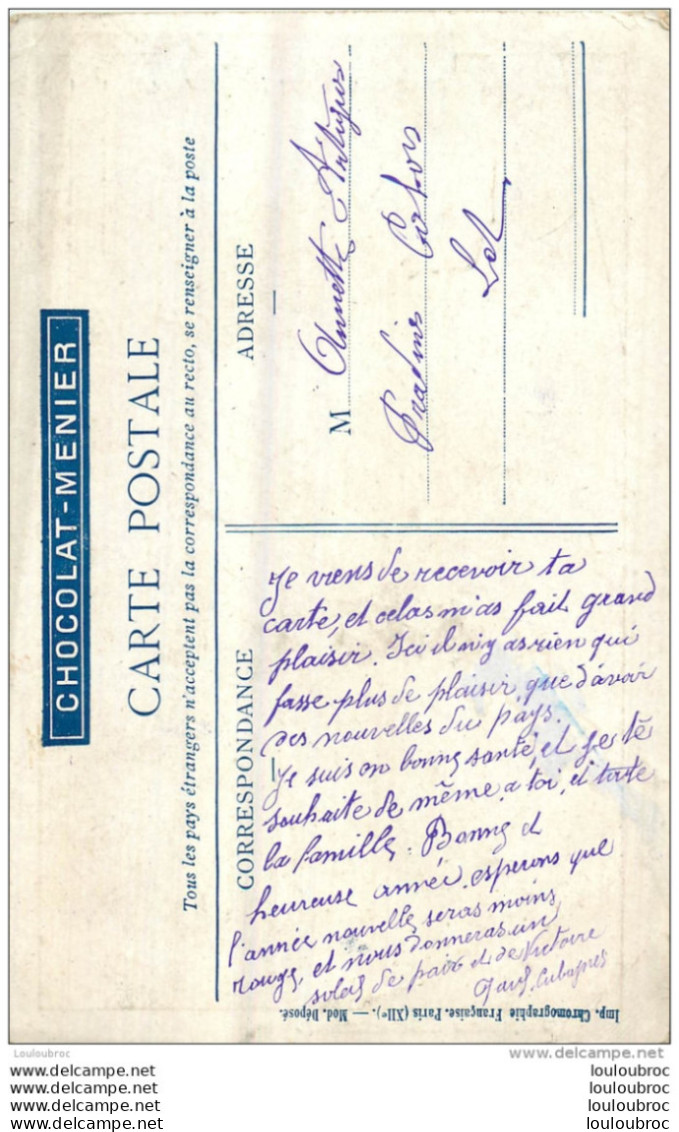 CHOCOLAT-MENIER
CARTE POSTALE
Tous les pays étrangers n'acceptent pas la correspondance au recto, se renseigner à la poste
CORRESPONDANCE
Je viens de recevoir ta
carte, et celas m'as fait grand
plaisir. Ici il n'y as rien qui
fasse plus de plaisir que d'avoir
des nouvelles du pays.
Je suis en bonne santé, et je te
souhaite de même a toi, et toute
la famille. Bonne et
heureuse année. esperons que
l'année nouvelle seras moins
rouge, et nous donneras un
soleil de paix et de Victoire
ADRESSE
M
Lot
Imp. Chromographie Française. Paris (XIIe). — Mod. Déposé.
Louloubroc
Louloubroc
Louloubroc
Louloubroc
delcampe.net
louloubroc
louloubroc
louloubroc
louloubroc